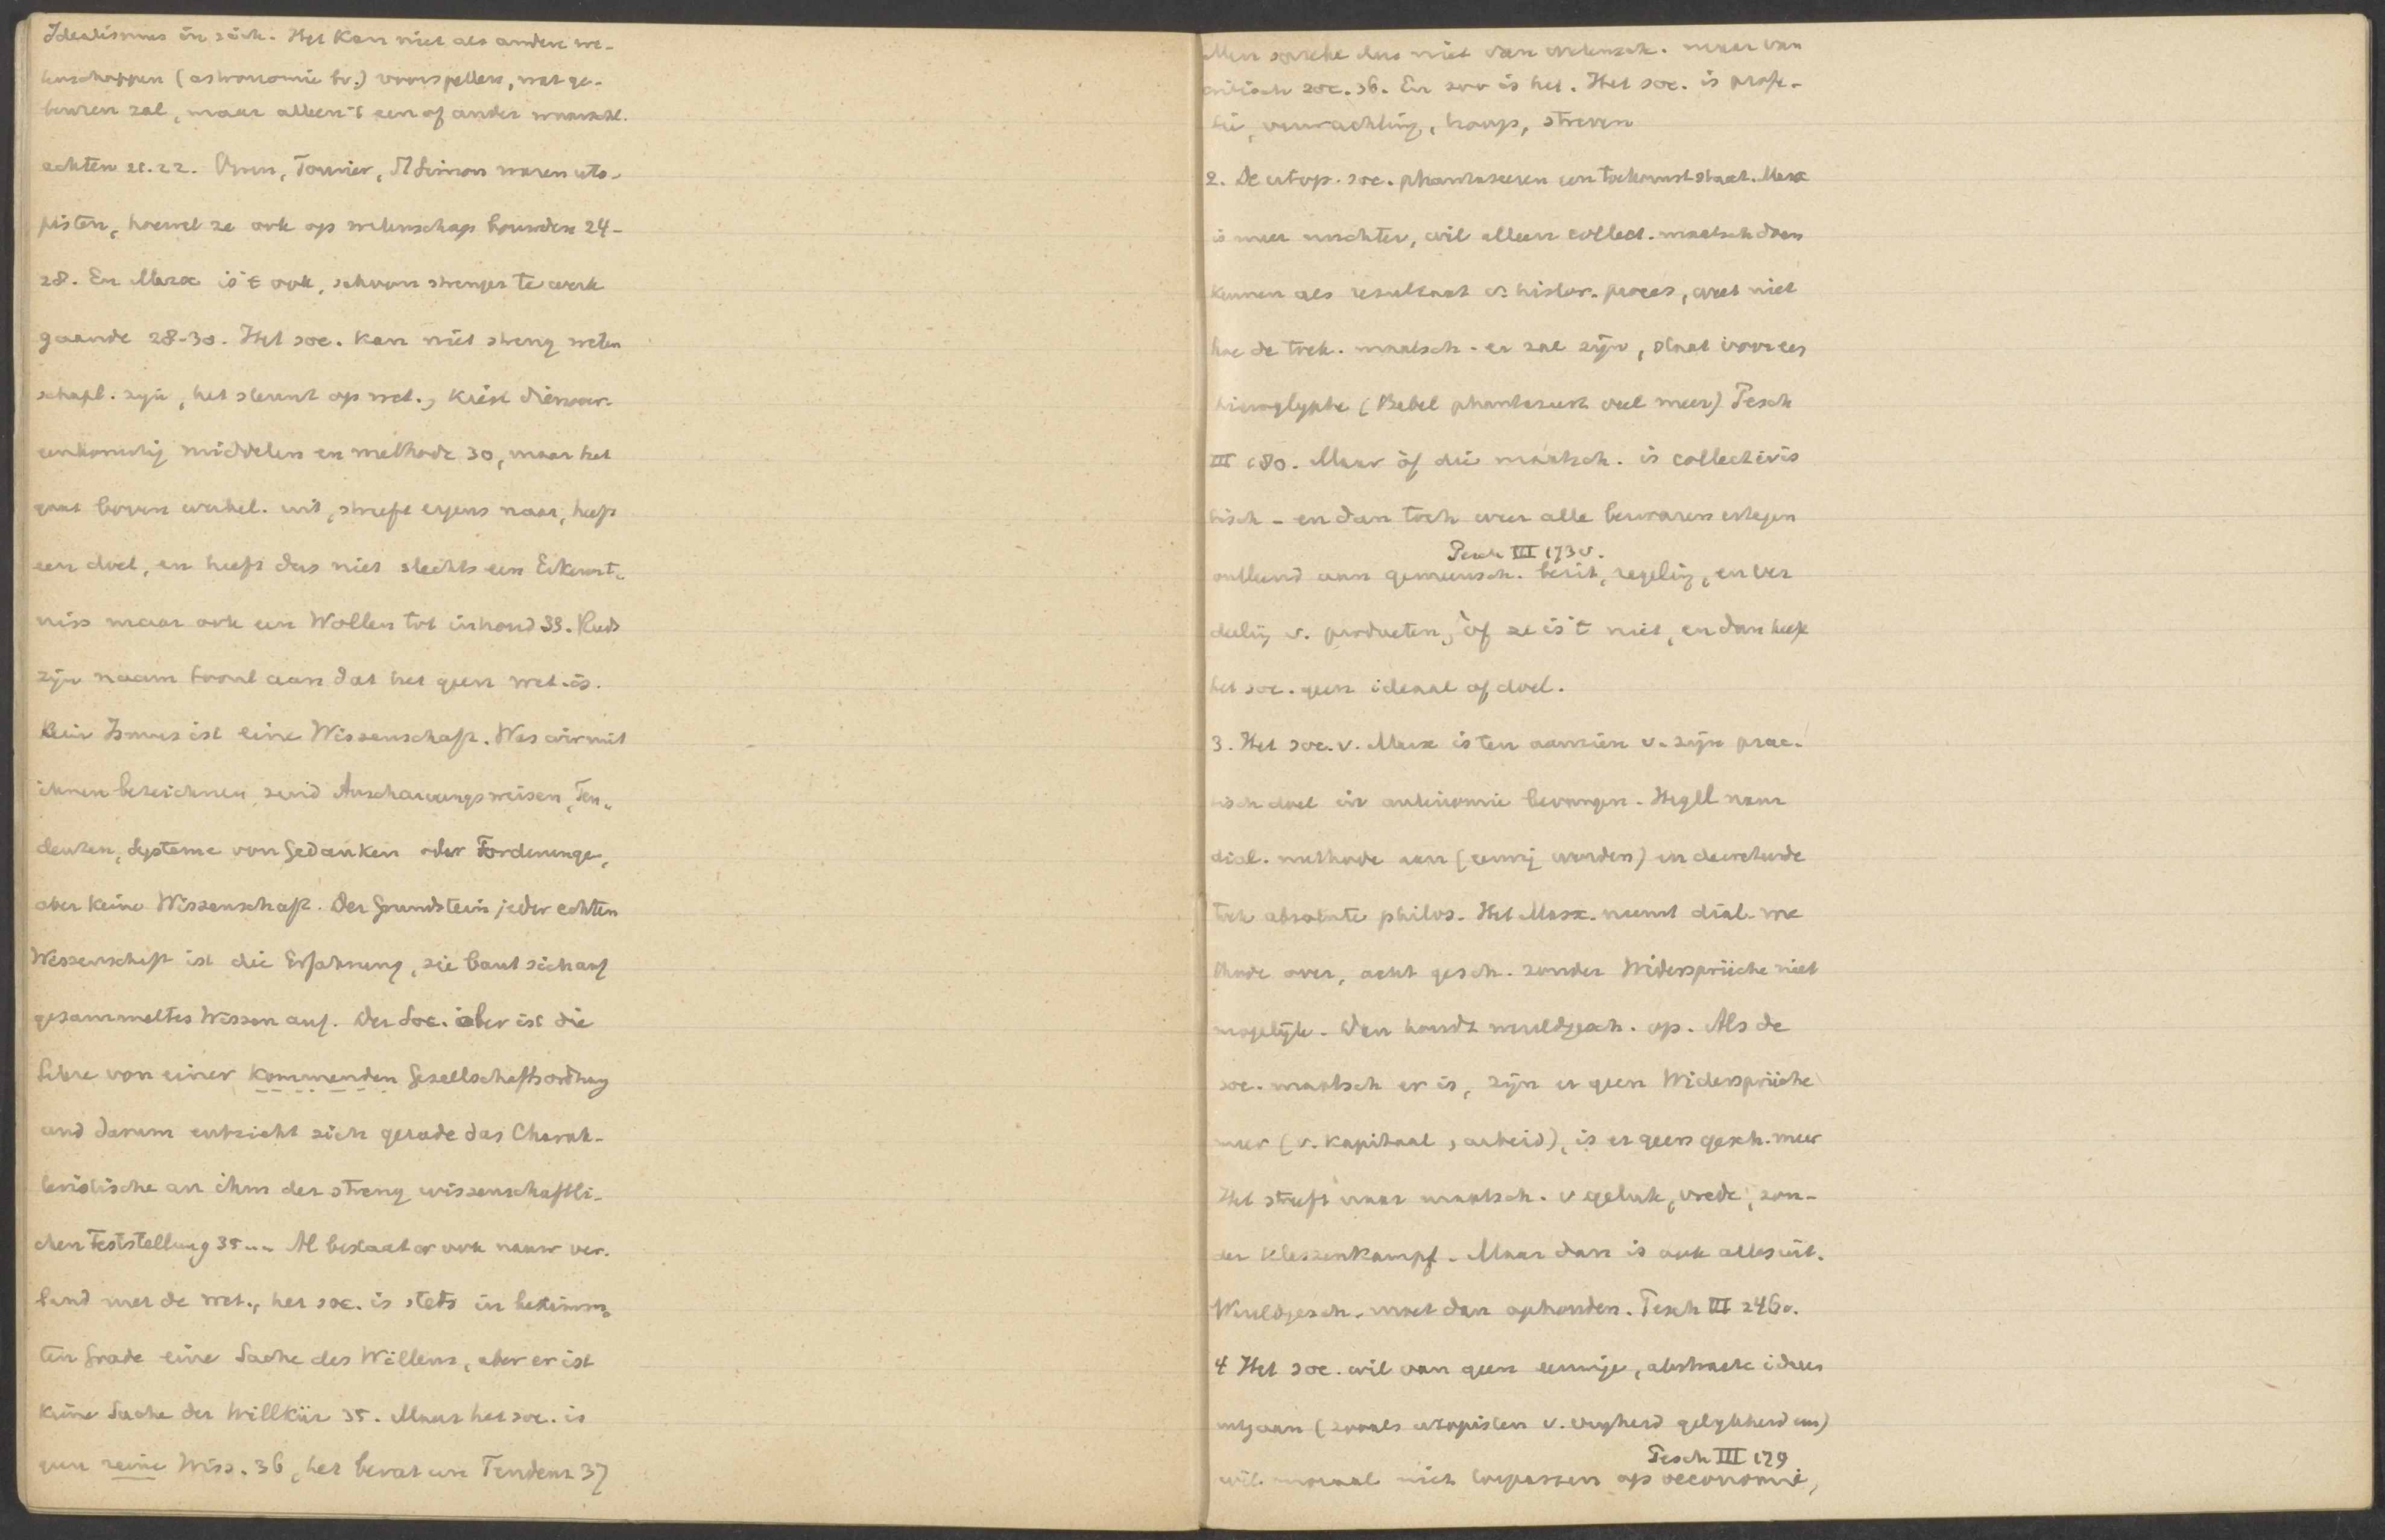 Idealismus in sich. Het kan niet als andere we-
tenschappen (astronomie bv.) voorspellen, wat ge-
beuren zal, maar alleen 't een of ander waarsch.
achten 21.22. Owen, Fourier, St Simon waren uto-
pisten, hoewel ze ook op wetenschap bouwden 24-
28. En Marx is 't ook, schoon strenger te werk
gaande 28-30. Het soc. kan niet streng weten
schapl. zijn, het steunt op wet., kiest dienover-
eenkomstig middelen en methode 30, maar het
gaat boven werkel. uit, streeft ergens naar, heeft
een doel, en heeft dus niet slechts een Erkennt-
niss maar ook een Wollen tot inhoud 33. Reeds
zijn naam toont aan dat het geen wet. is.
Kein Ismus ist eine Wissenschaft. Was wir mit
ihnen bezeichnen, seind Anschauungsweisen, Ten-
denzen, Systeme von Gedanken oder Forderungen,
aber keine Wissenschaft. Der Grundstein jeder echten
Wissenschaft ist die Erfahrung, sie baut sich auf
gesammeltes Wissen auf. Der Soc. aber ist die
Lehre von einer kommenden Gesellschaftsordnung
und darum entzieht sich gerade das Charak-
teristische an ihm der streng wissenschaftli-
chen Feststellung 35... Al bestaat er ook nauw ver-
band met de wet., het soc. is stets in bestimm-
ten Grade eine Sache des Willens, aber er ist
keine Sache der Willkür 35. Maar het soc. is
geen reine Wiss. 36, het bevat een Tendenz 37
Men spreke dus niet van wetensch. maar van
critisch soc. 36. En zoo is het. Het soc. is profe-
tie, verwachting, hoop, streven
2. De utop. soc. phantaseeren een toekomststaat. Marx
is meer nuchter, wil alleen collect. maatsch doen
kennen als resultaat v. histor. proces, weet niet
hoe de toek. maatsch. er zal zijn, staat voor een
hieroglyphe (Bebel phantaseert veel meer) Pesch
III 180. Maar òf die maatsch. is collectivis
tisch - en dan toch weer alle bezwaren ertegen
Pesch III 173v.
ontleend aan gemeensch. bezit, regeling, en ver
deeling v. producten, òf ze is 't niet, en dan heeft
het soc. geen ideaal of doel.
3. Het soc. v. Marx is ten aanzien v. zijn prac-
tisch doel in antinomie bevangen. Hegel nam
dial. methode aan (eeuwig worden) en decreteerde
toch absolute philos. Het Marx. neemt dial. me
thode over, acht gesch. zonder Widersprüche niet
mogelijk. Dan houdt wereldgesch. op. Als de
soc. maatsch er is, zijn er geen Widersprüche
meer (v. kapitaal, arbeid), is er geen gesch. meer
Het streeft naar maatsch. v geluk, vrede, zon-
der Klassenkampf. Maar dan is ook alles uit.
Wereldgesch. moet dan ophouden. Pesch III 246v.
4 Het soc. wil van geen eeuwige, abstracte idees
uitgaan (zooals utopisten v. vrijheid gelijkheid enz)
Pesch III 179
wil moraal niet toepassen op oeconomie,